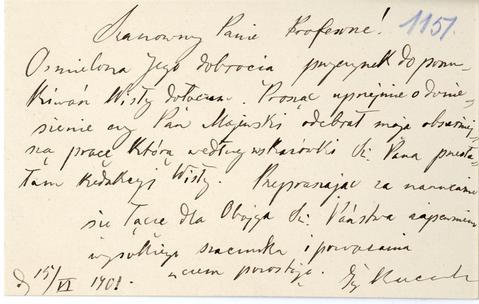 Szanowny Panie Profesorze! 1151.
Ośmielona Jego dobrocią przyczynek do poszu-
kiwań Wisły dołączam. Prosząc uprzejmie o donie-
sienie czy Pan Majewski odebrał moją obszerniej-
szą pracę którą według wskazówki Sz. Pana przesła-
łam Redakcyi Wisły. Przepraszając za narzucanie
się łączę dla Obojga Sz. Państwa zapewnienie
wysokiego szacunku i poważania
z czem pozostaję
15/VI 1901.